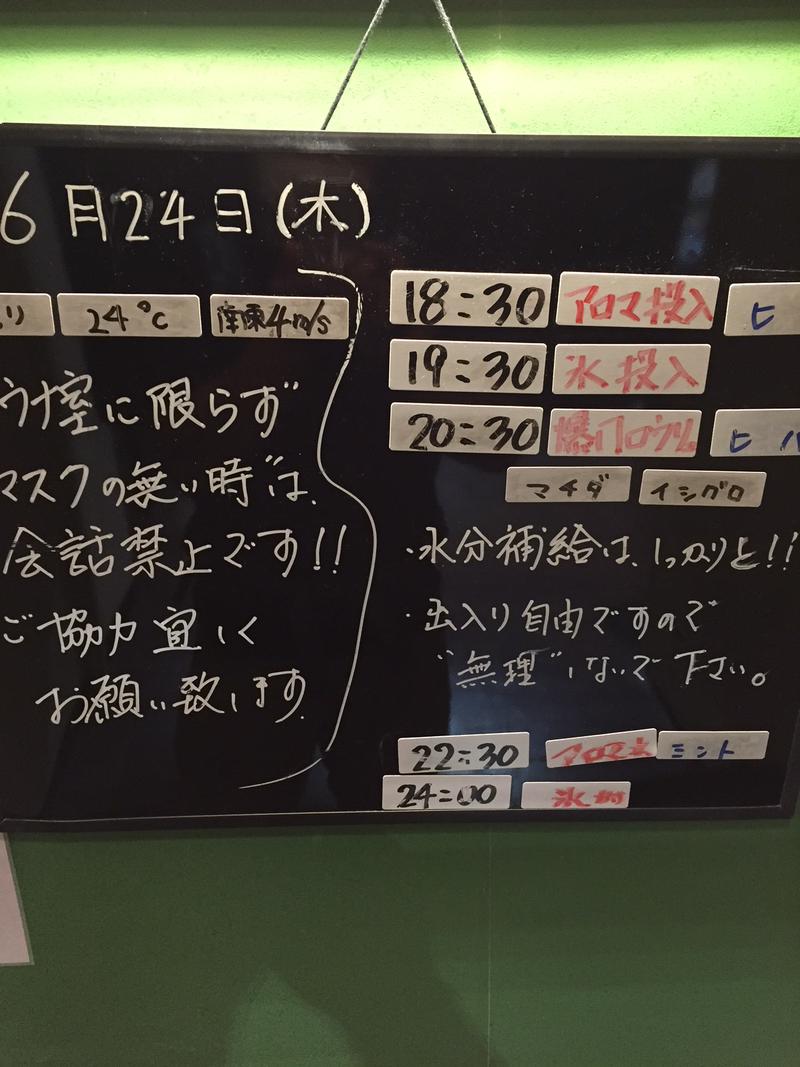 6月24日(木)
り 24℃ 南東4m/s
ウナ室に限らず
マスクの無い時は、
会話禁止です!!
ご協力宜しく
お願い致します。
18:30 アロマ投入 ヒ
19:30 氷投入
20:30 爆風ロウリュ ヒバ
マチダ イシグロ
・水分補給は、しっかりと!!
・出入り自由ですので
"無理"しないで下さい。
22:30 アロマ水 ミント
24:00 氷